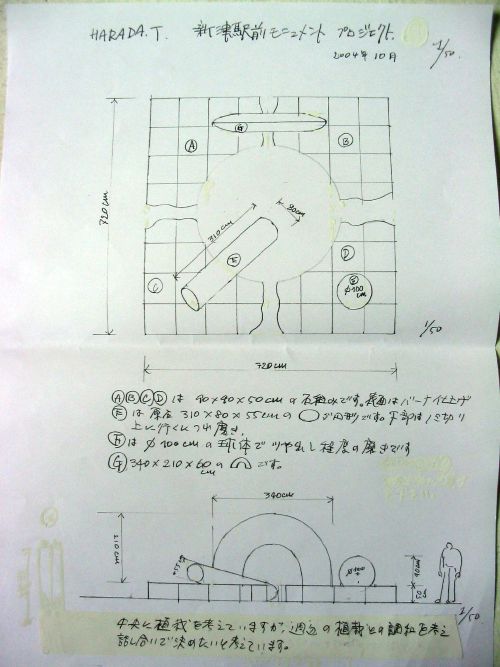 HARADA.T. 新津駅前モニュメント プロジェクト.
2004年10月
1/50.
G
A
B
720cm
310cm
80cm
F
D
C
E
φ100
cm
1/50
720cm
ABCDは 90×90×50cmの石組みです。表面はバーナー仕上げ
Fは 原石 310×80×55cmの
上に行くにつれ磨き,
Eは φ100cmの球体でツヤ消し程度の磨きです
G 340×210×60cmの です。
340cm
210cm
φ100
50
1/50
中央に植栽を考えていますが、週辺の植栽との調和を考え
話し合いで決めたいと考えています。